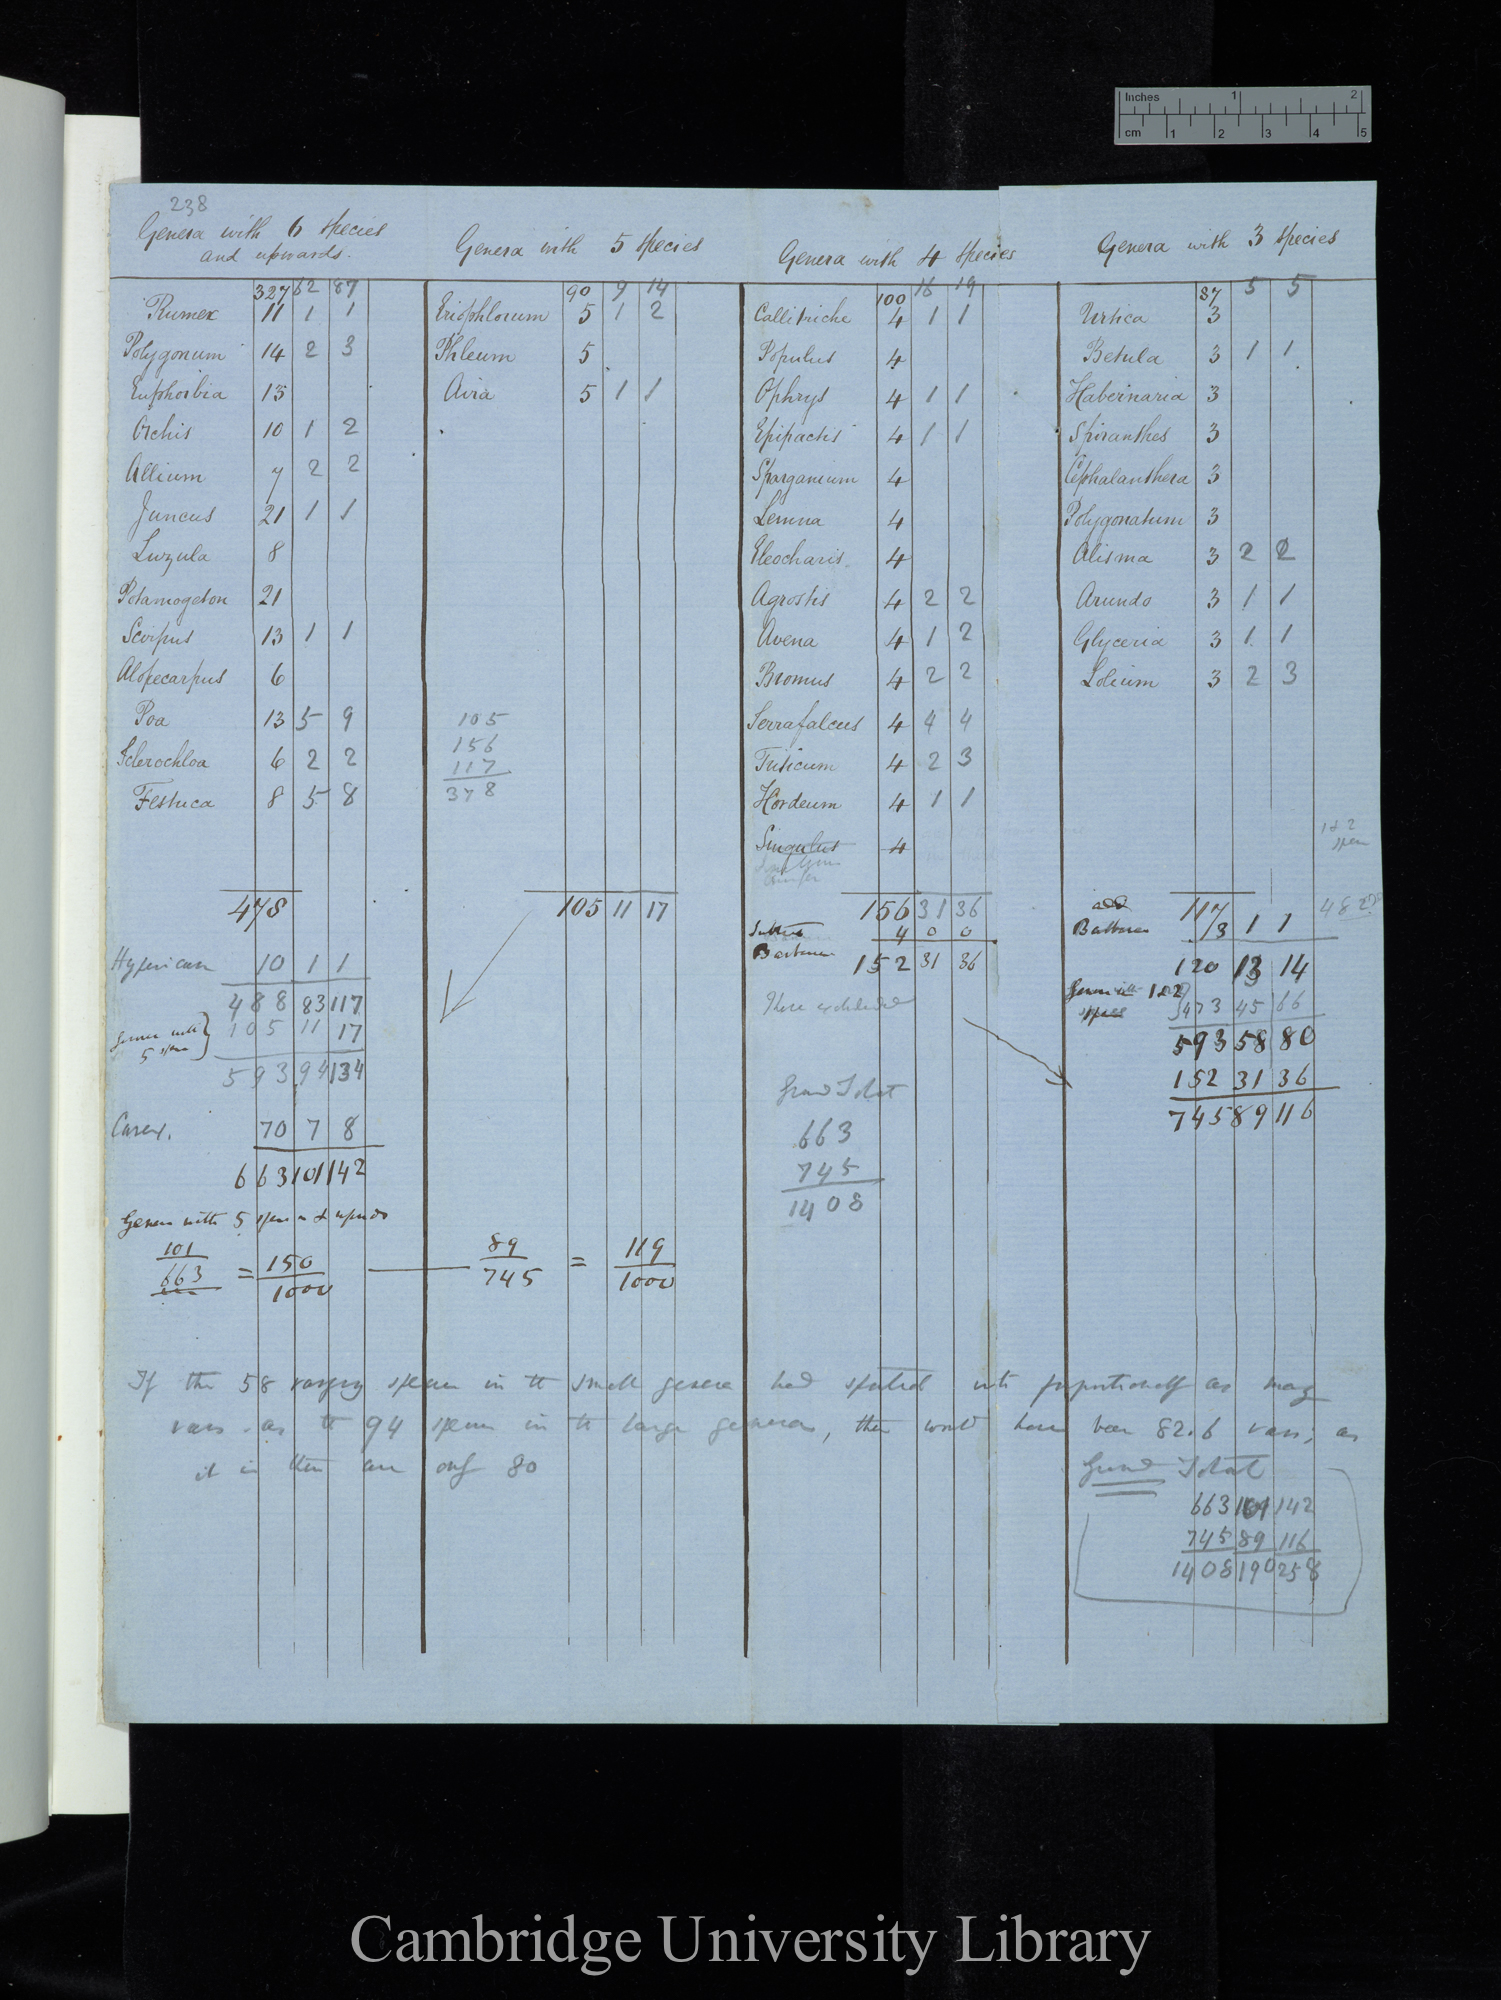 Inches 1 2
cm 1 2 3 4 5
238
Genera with 6 species
and upwards.
327 62 87
Rumex 11 1 1
Polygonum 14 2 3
Euphorbia 13
Orchis 10 1 2
Allium 7 2 2
Juncus 21 1 1
Luzula 8
Potamogeton 21
Scirpus 13 1 1
Alopecarpus 6
Poa 13 5 9
Sclerochloa 6 2 2
Festuca 8 5 8
478
Hypericum 10 1 1
488 83 117
Genera with 5 spec } 105 11 17
593 94 134
Carex. 70 7 8
663 101 142
Genera with 5 species & upwards
101/663 = 150/1000 — 89/745 = 119/1000
Genera with 5 species
90 9 14
Eriophlorum 5 1 2
Phleum 5
Aira 5 1 1
105
156
117
378
105 11 17
Genera with 4 species
100 18 19
Callitriche 4 1 1
Populus 4
Ophrys 4 1 1
Epipactis 4 1 1
Sparganium 4
Lemna 4
Eleocharis 4
Agrostis 4 2 2
Avena 4 1 2
Bromus 4 2 2
Serrafalcus 4 4 4
Triticum 4 2 3
Hordeum 4 1 1
Singulus 4
156 31 36
4 0 0
Barbarea 152 31 36
These excluded
Grand Total
663
745
1408
Genera with 3 species
87 5 5
Urtica 3
Betula 3 1 1
Habernaria 3
Spiranthes 3
Cephalanthera 3
Polygonatum 3
Alisma 3 2 2
Arundo 3 1 1
Glyceria 3 1 1
Lolium 3 2 3
1 & 2
spec
482
117
add
Barbarea 3 1 1
120 13 14
Genera with 1 & 2 species 473 45 66
593 58 80
152 31 36
745 89 116
If the 58 varying species in the small genera had sported into proportionally as many
vars. as the 94 species in the large genera, there would have been 82.6 vars; as
it is there are only 80
Grand Total
663 101 142
745 89 116
1408 190 258
Cambridge University Library